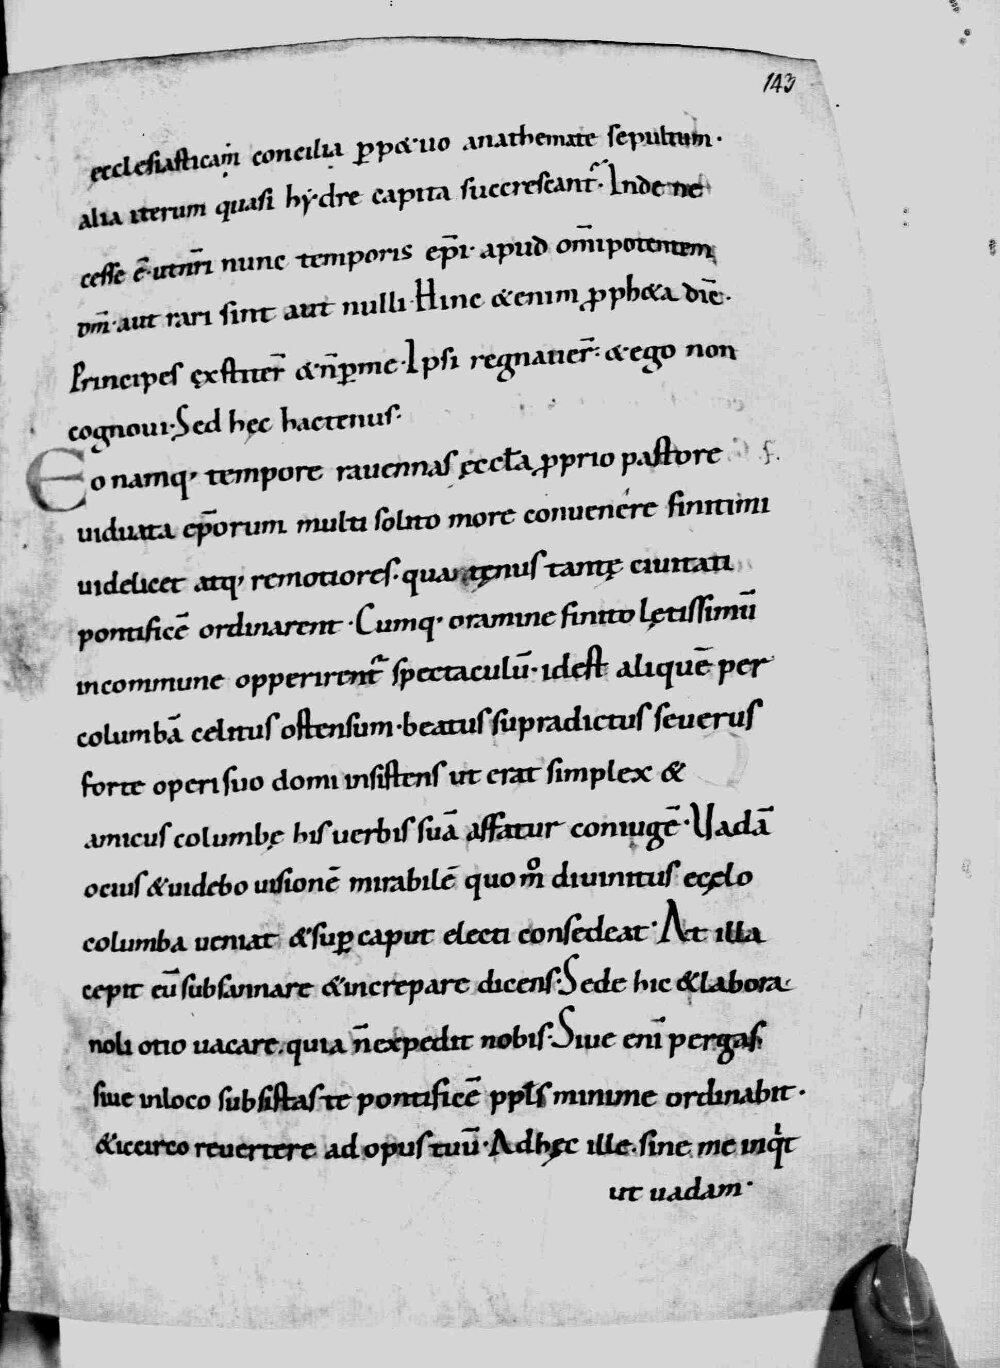 143
ęcclesiasticam concilia ꝑpetuo anathemate sepultum.
alia iterum quasi hẏdre capita succrescant᷑. Inde ne
cesse ē. ut nr̄i nunc temporis ep̄i. apud om̄ipotentem
dm̄. aut rari sint aut nulli. Hinc &enim ꝓph&a dic̄.
Principes ęxstiter̄ & n̄ ꝑ me. Ipsi regnauer̄: & ego non
cognoui. Sed hęc hactenus.
Eo namq; tempore rauennas ęccła ꝓprio pastore
uiduata ep̄orum multi solito more conuenere finitimi
uidelicet atq; remotiores. quatenus tantę ciuitati
pontificē ordinarent. Cumq; oramine finito lętissimū
incommune opperirent᷑ spectaculū. idest aliquē per
columbā celitus ostensum. beatus supradictus seuerus
forte operi suo domi insistens ut erat simplex &
amicus columbę his uerbis suā affatur coniugē. Uadā
ocius & uidebo uisionē mirabilē quo m̊ diuinitus ecęlo
columba ueniat & suꝑ caput electi consedeat. At illa
cepit eū subsannare & increpare dicens. Sede hic & labora
noli otio uacare. quia n̄ expedit nobis. Siue eni̅ pergas
siue inloco subsistas te pontificē ppłs minime ordinabit.
& iccirco reuertere ad opus tuū. Adhęc ille. sine me inq̇t
ut uadam.